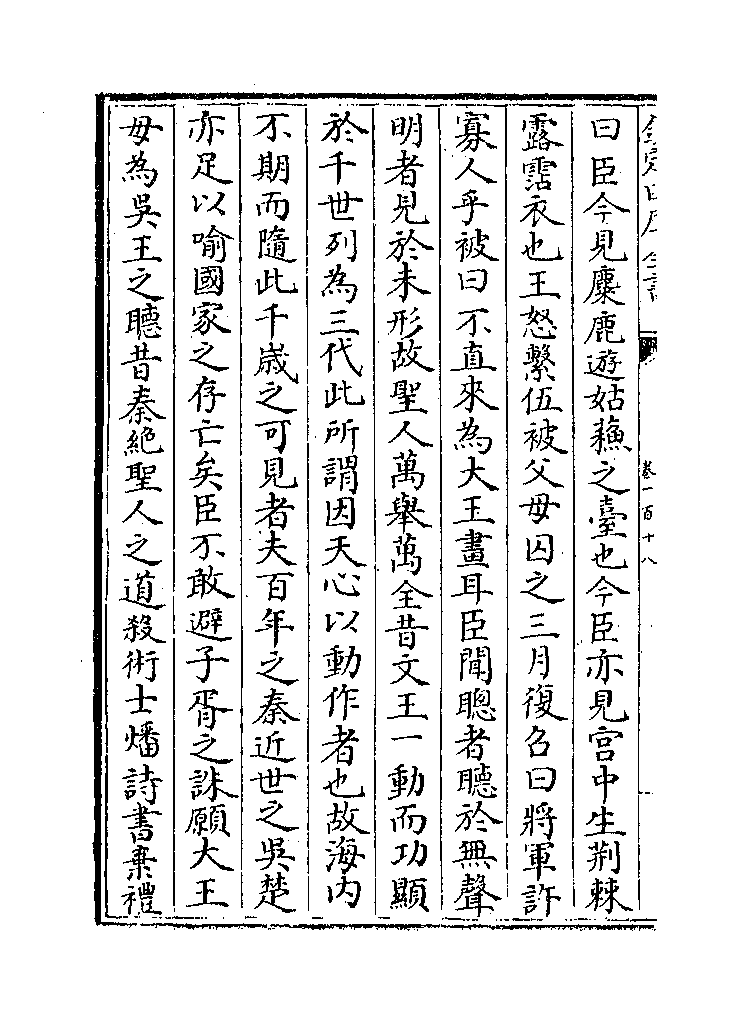 曰臣今見麋鹿遊姑蘓之臺也今臣亦見宫中生荆棘
露霑衣也王怒繫伍被父母囚之三月復召曰將軍許
寡人乎被曰不直來為大王畫耳臣聞聰者聽於無聲
明者見於未形故聖人萬舉萬全昔文王一動而功顯
於千世列為三代此所謂因天心以動作者也故海内
不期而隨此千嵗之可見者夫百年之秦近世之吳楚
亦足以喻國家之存亡矣臣不敢避子胥之誅願大王
毋為吳王之聽昔秦絶聖人之道殺術士燔詩書棄禮
卷一百十八